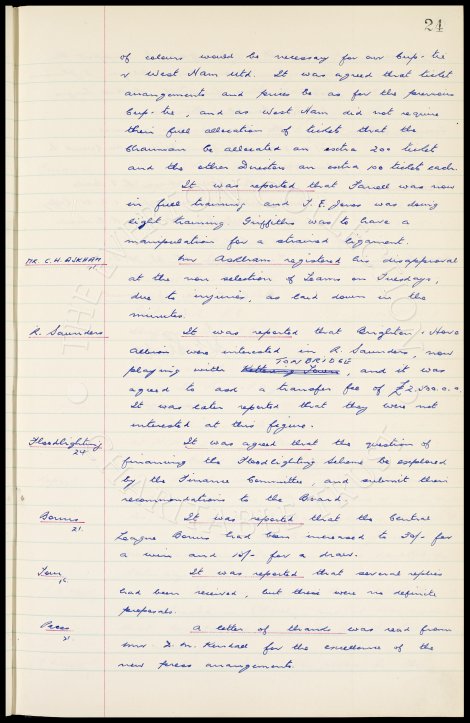 24
of colours would be necessary for our Cup-tie
v West Ham Utd. It was agreed that ticket
arrangements and prices be as for the previous
Cup-tie, and as West Ham did not require
their full allocation of tickets that the
Chairman be allocated an extra 200 tickets
and the other Directors an extra 100 tickets each.
It was reported that Farrell was now
in full training and T. E. Jones was doing
light training. Griffiths was to have a
manipulation for a strained ligament.
MR. C. H. ASKHAM
Mr Askham registered his disapproval
at the non selection of Teams on Tuesdays,
due to injuries, as laid down in the
minutes.
R. Saunders
It was reported that Brighton & Hove
Albion were interested in R. Saunders, now
TONBRIDGE
playing with Kettering Town, and it was
agreed to ask a transfer fee of £2,500.0.0.
It was later reported that they were not
interested at this figure.
Floodlighting
24
It was agreed that the question of
financing the Floodlighting Scheme be explored
by the Finance Committee, and submit their
recommendations to the Board.
Bonus
21.
It was reported that the Central
League Bonus had been increased to 30/- for
a win and 10/- for a draw.
Tour
16.
It was reported that several replies
had been received, but there were no definite
proposals.
Press
21.
A letter of thanks was read from
Mr. D. M. Kendall for the excellence of the
new press arrangements.